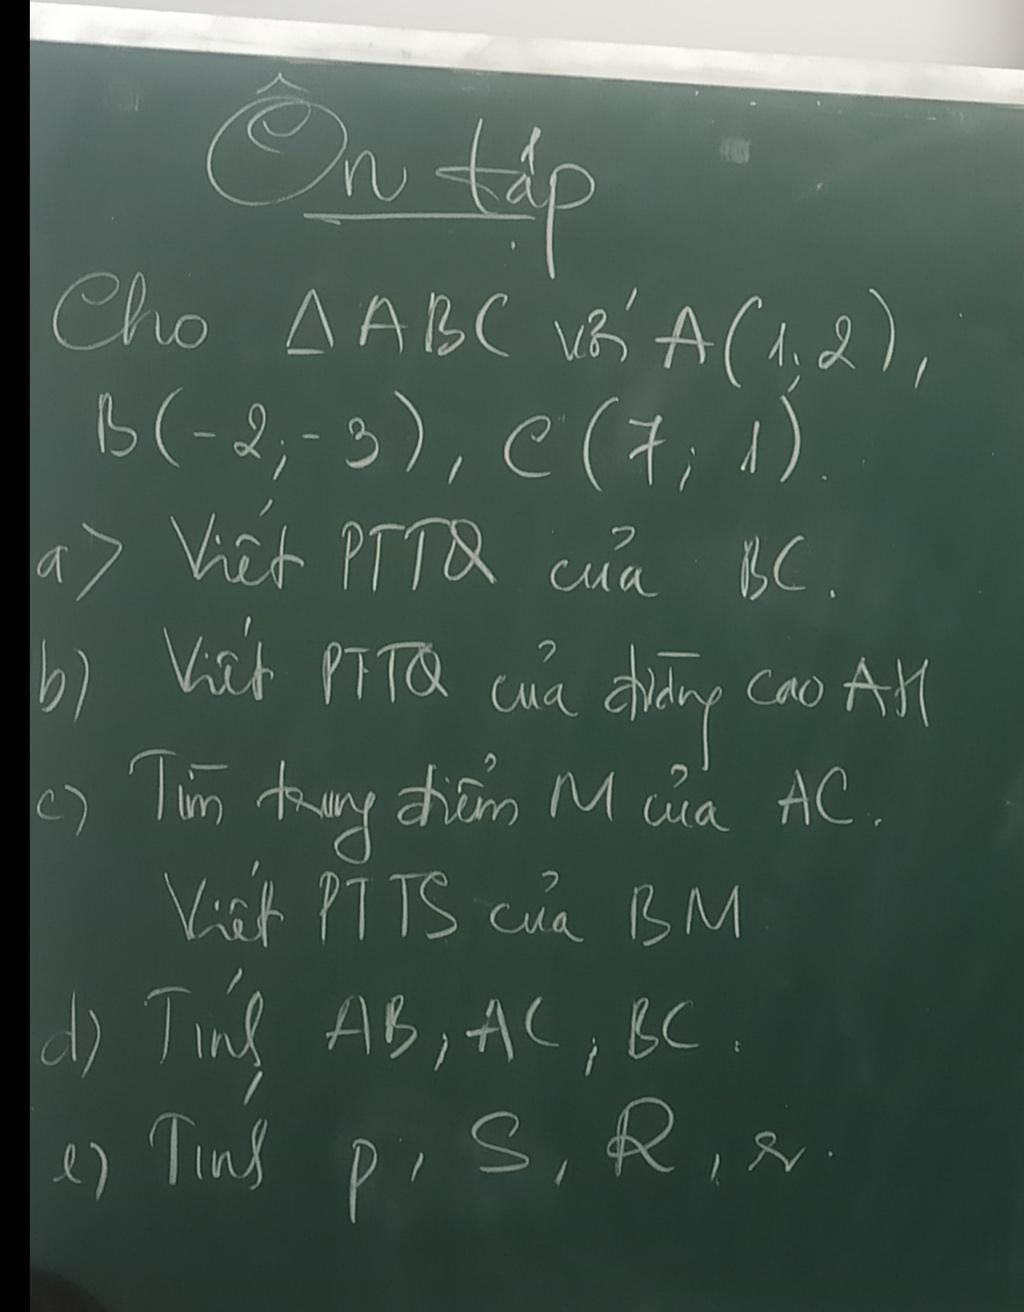 Ôn tập
Cho ΔABC với A(1;2),
B(-2;-3), C(7;1).
a> Viết PTTQ của BC.
b) Viết PTTQ của đường cao AH
c) Tìm trung điểm M của AC.
Viết PTTS của BM
d) Tính AB, AC, BC.
e) Tính p, S, R, r.